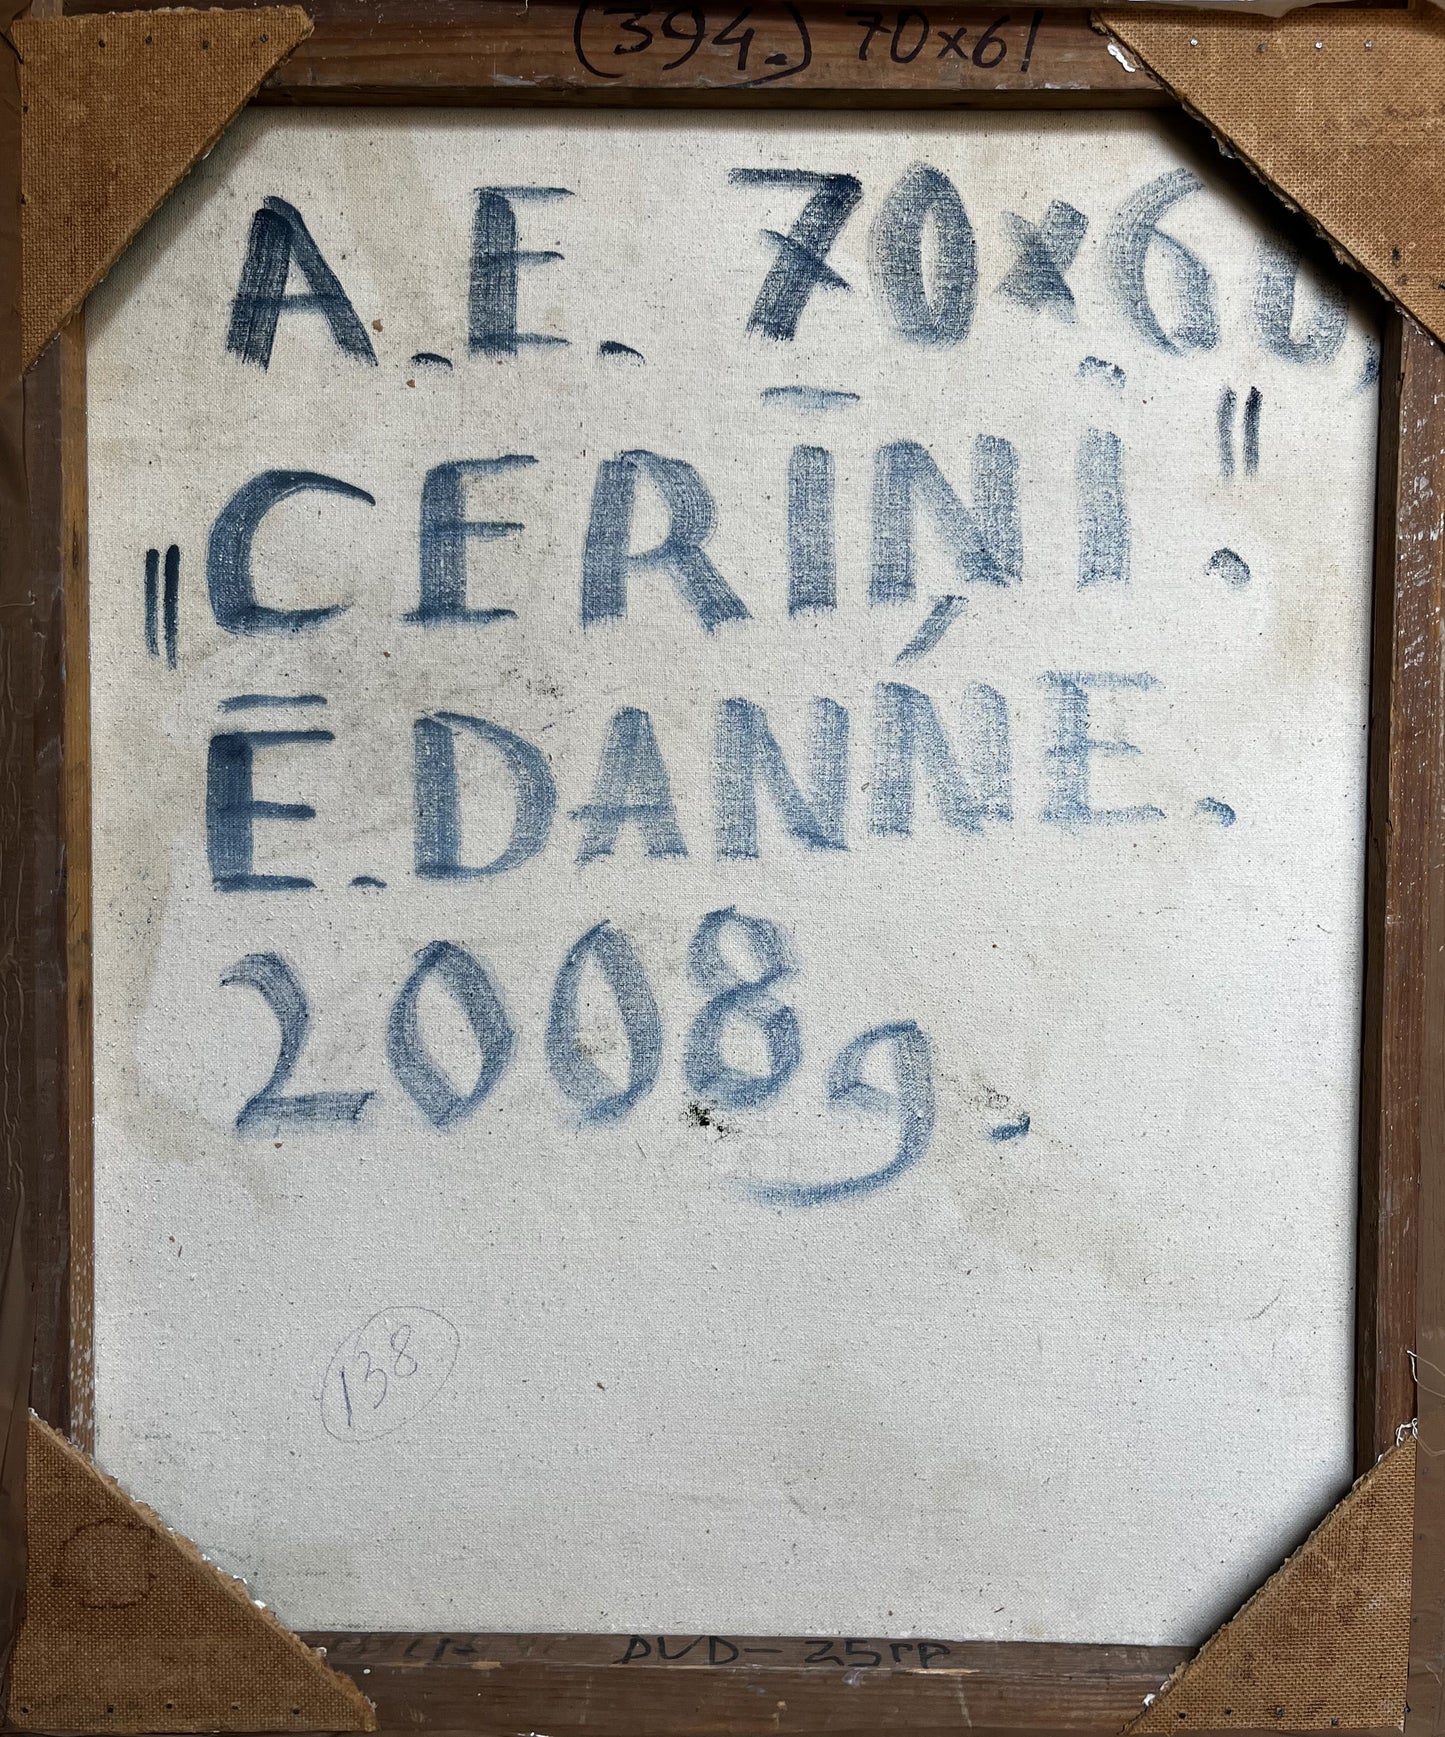 (394.) 70x61
A. E. 70x60.
"CERIŅI."
Ē. DANŃE.
2008 g.
138
DVD - 25